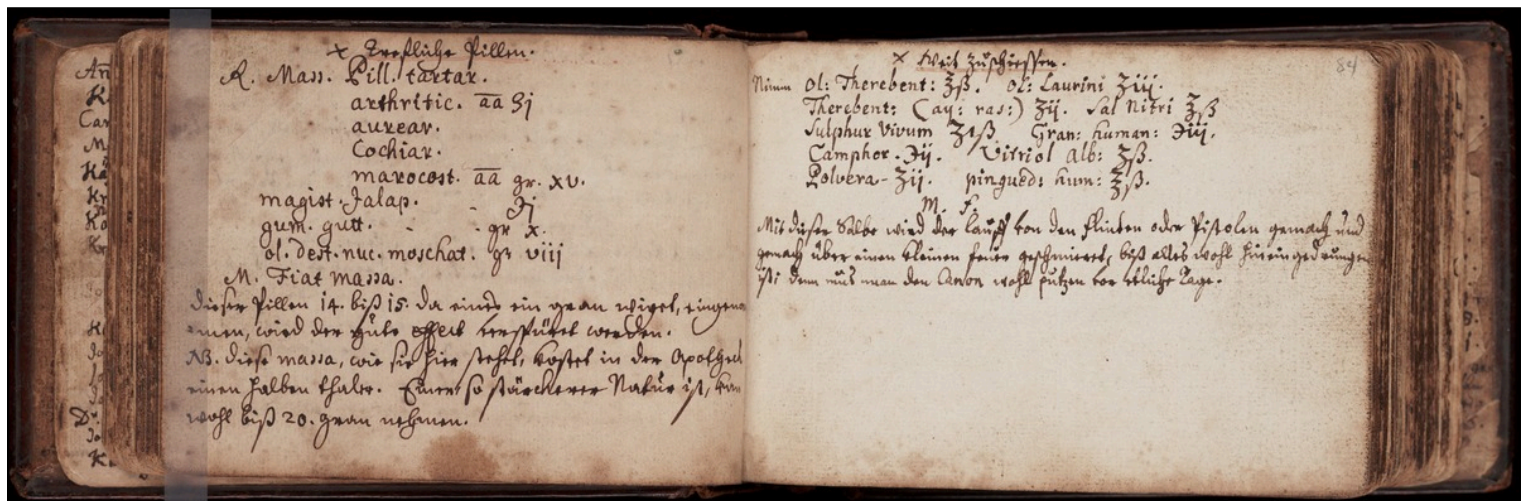 × Trefliche Pillen.
R. Mass. Pill. tartar.
arthritic. āā ʒj
aurear.
Cochiar.
marocost. āā gr. xv.
magist. Jalap. - ℈j
gum. gutt. - - gr x.
ol. dest. nuc. moschat. gr viij
M. Fiat massa.
dieser Pillen 14. biß 15. da eines ein gran wiget, eingeno
men, wird der gute effect verspüret werden.
NB. diese massa, wie sie hier stehet, kostet in der Apotheck
einen halben thaler. Einer so stärckerer Natur ist, kan
wohl biß 20. gran nehmen.
84
× Weit zuschiessen.
Nimm ol: Therebent: ℥ß. ol: Laurini ʒiij.
Therebent: (ay: ras:) ʒij. Sal Nitri ℥ß
Sulphur vivum ʒ1ß Gran: human: ℈iij.
Camphor. ℈ij. Vitriol alb: ʒß.
Polvera - ʒij. pingued: hum: ℥ß.
M. F.
Mit dieser Salbe wird der lauff von den flinten oder Pistolen gemach und
gemach über einen kleinen feuer geschmieret, biß alles wohl hineingedrungen
ist; denn mus man den Canon wohl putzen vor etliche Tage.
An
K
Car
M
Hä
Kr
Kö
K
Ja
D.
Ja
K